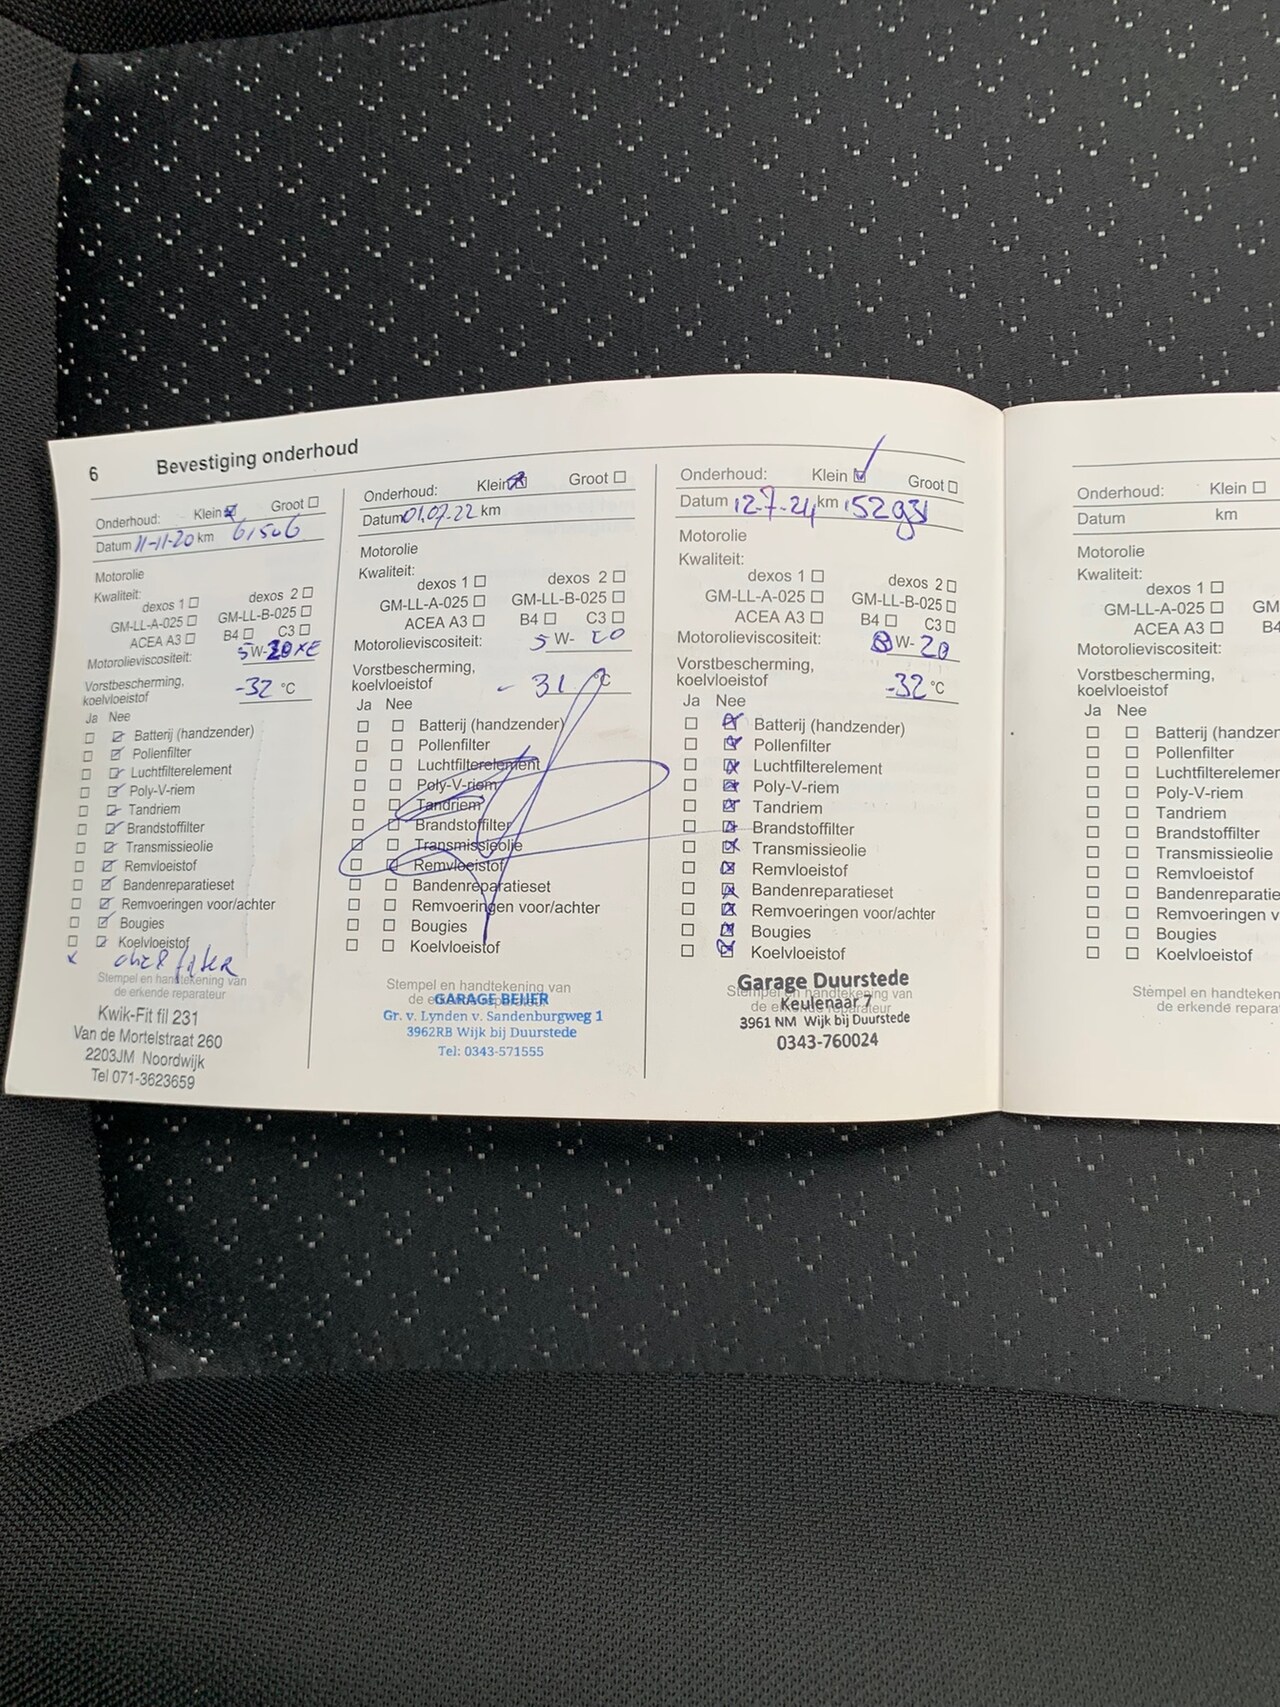 6 Bevestiging onderhoud
Onderhoud: Klein Groot
Datum 11-11-20 km 61506
Motorolie
Kwaliteit:
dexos 1 dexos 2
GM-LL-A-025 GM-LL-B-025
ACEA A3 B4 C3
Motorolieviscositeit: 5W-
Vorstbescherming,
koelvloeistof -32 °C
Ja Nee
Batterij (handzender)
Pollenfilter
Luchtfilterelement
Poly-V-riem
Tandriem
Brandstoffilter
Transmissieolie
Remvloeistof
Bandenreparatieset
Remvoeringen voor/achter
Bougies
Koelvloeistof
x filter
Stempel en handtekening van
de erkende reparateur
Kwik-Fit fil 231
Van de Mortelstraat 260
2203JM Noordwijk
Tel 071-3623659
Onderhoud: Klein Groot
Datum 01.07.22 km
Motorolie
Kwaliteit:
dexos 1 dexos 2
GM-LL-A-025 GM-LL-B-025
ACEA A3 B4 C3
Motorolieviscositeit: 5 W-
Vorstbescherming,
koelvloeistof - 31 °C
Ja Nee
Batterij (handzender)
Pollenfilter
Luchtfilterelement
Poly-V-riem
Tandriem
Brandstoffilter
Transmissieolie
Remvloeistof
Bandenreparatieset
Remvoeringen voor/achter
Bougies
Koelvloeistof
Stempel en handtekening van
de erkende reparateur
GARAGE BEIJER
Gr. v. Lynden v. Sandenburgweg 1
3962RB Wijk bij Duurstede
Tel: 0343-571555
Onderhoud: Klein Groot
Datum 12-7-24 km
Motorolie
Kwaliteit:
dexos 1 dexos 2
GM-LL-A-025 GM-LL-B-025
ACEA A3 B4 C3
Motorolieviscositeit: W- 20
Vorstbescherming,
koelvloeistof -32 °C
Ja Nee
Batterij (handzender)
Pollenfilter
Luchtfilterelement
Poly-V-riem
Tandriem
Brandstoffilter
Transmissieolie
Remvloeistof
Bandenreparatieset
Remvoeringen voor/achter
Bougies
Koelvloeistof
Stempel en handtekening van
de erkende reparateur
Garage Duurstede
Keulenaar 7
3961 NM Wijk bij Duurstede
0343-760024
Onderhoud: Klein
Datum km
Motorolie
Kwaliteit:
dexos 1
GM-LL-A-025 GM
ACEA A3 B4
Motorolieviscositeit:
Vorstbescherming,
koelvloeistof
Ja Nee
Batterij (handzen
Pollenfilter
Luchtfilterelemen
Poly-V-riem
Tandriem
Brandstoffilter
Transmissieolie
Remvloeistof
Bandenreparatie
Remvoeringen v
Bougies
Koelvloeistof
Stempel en handteken
de erkende repara